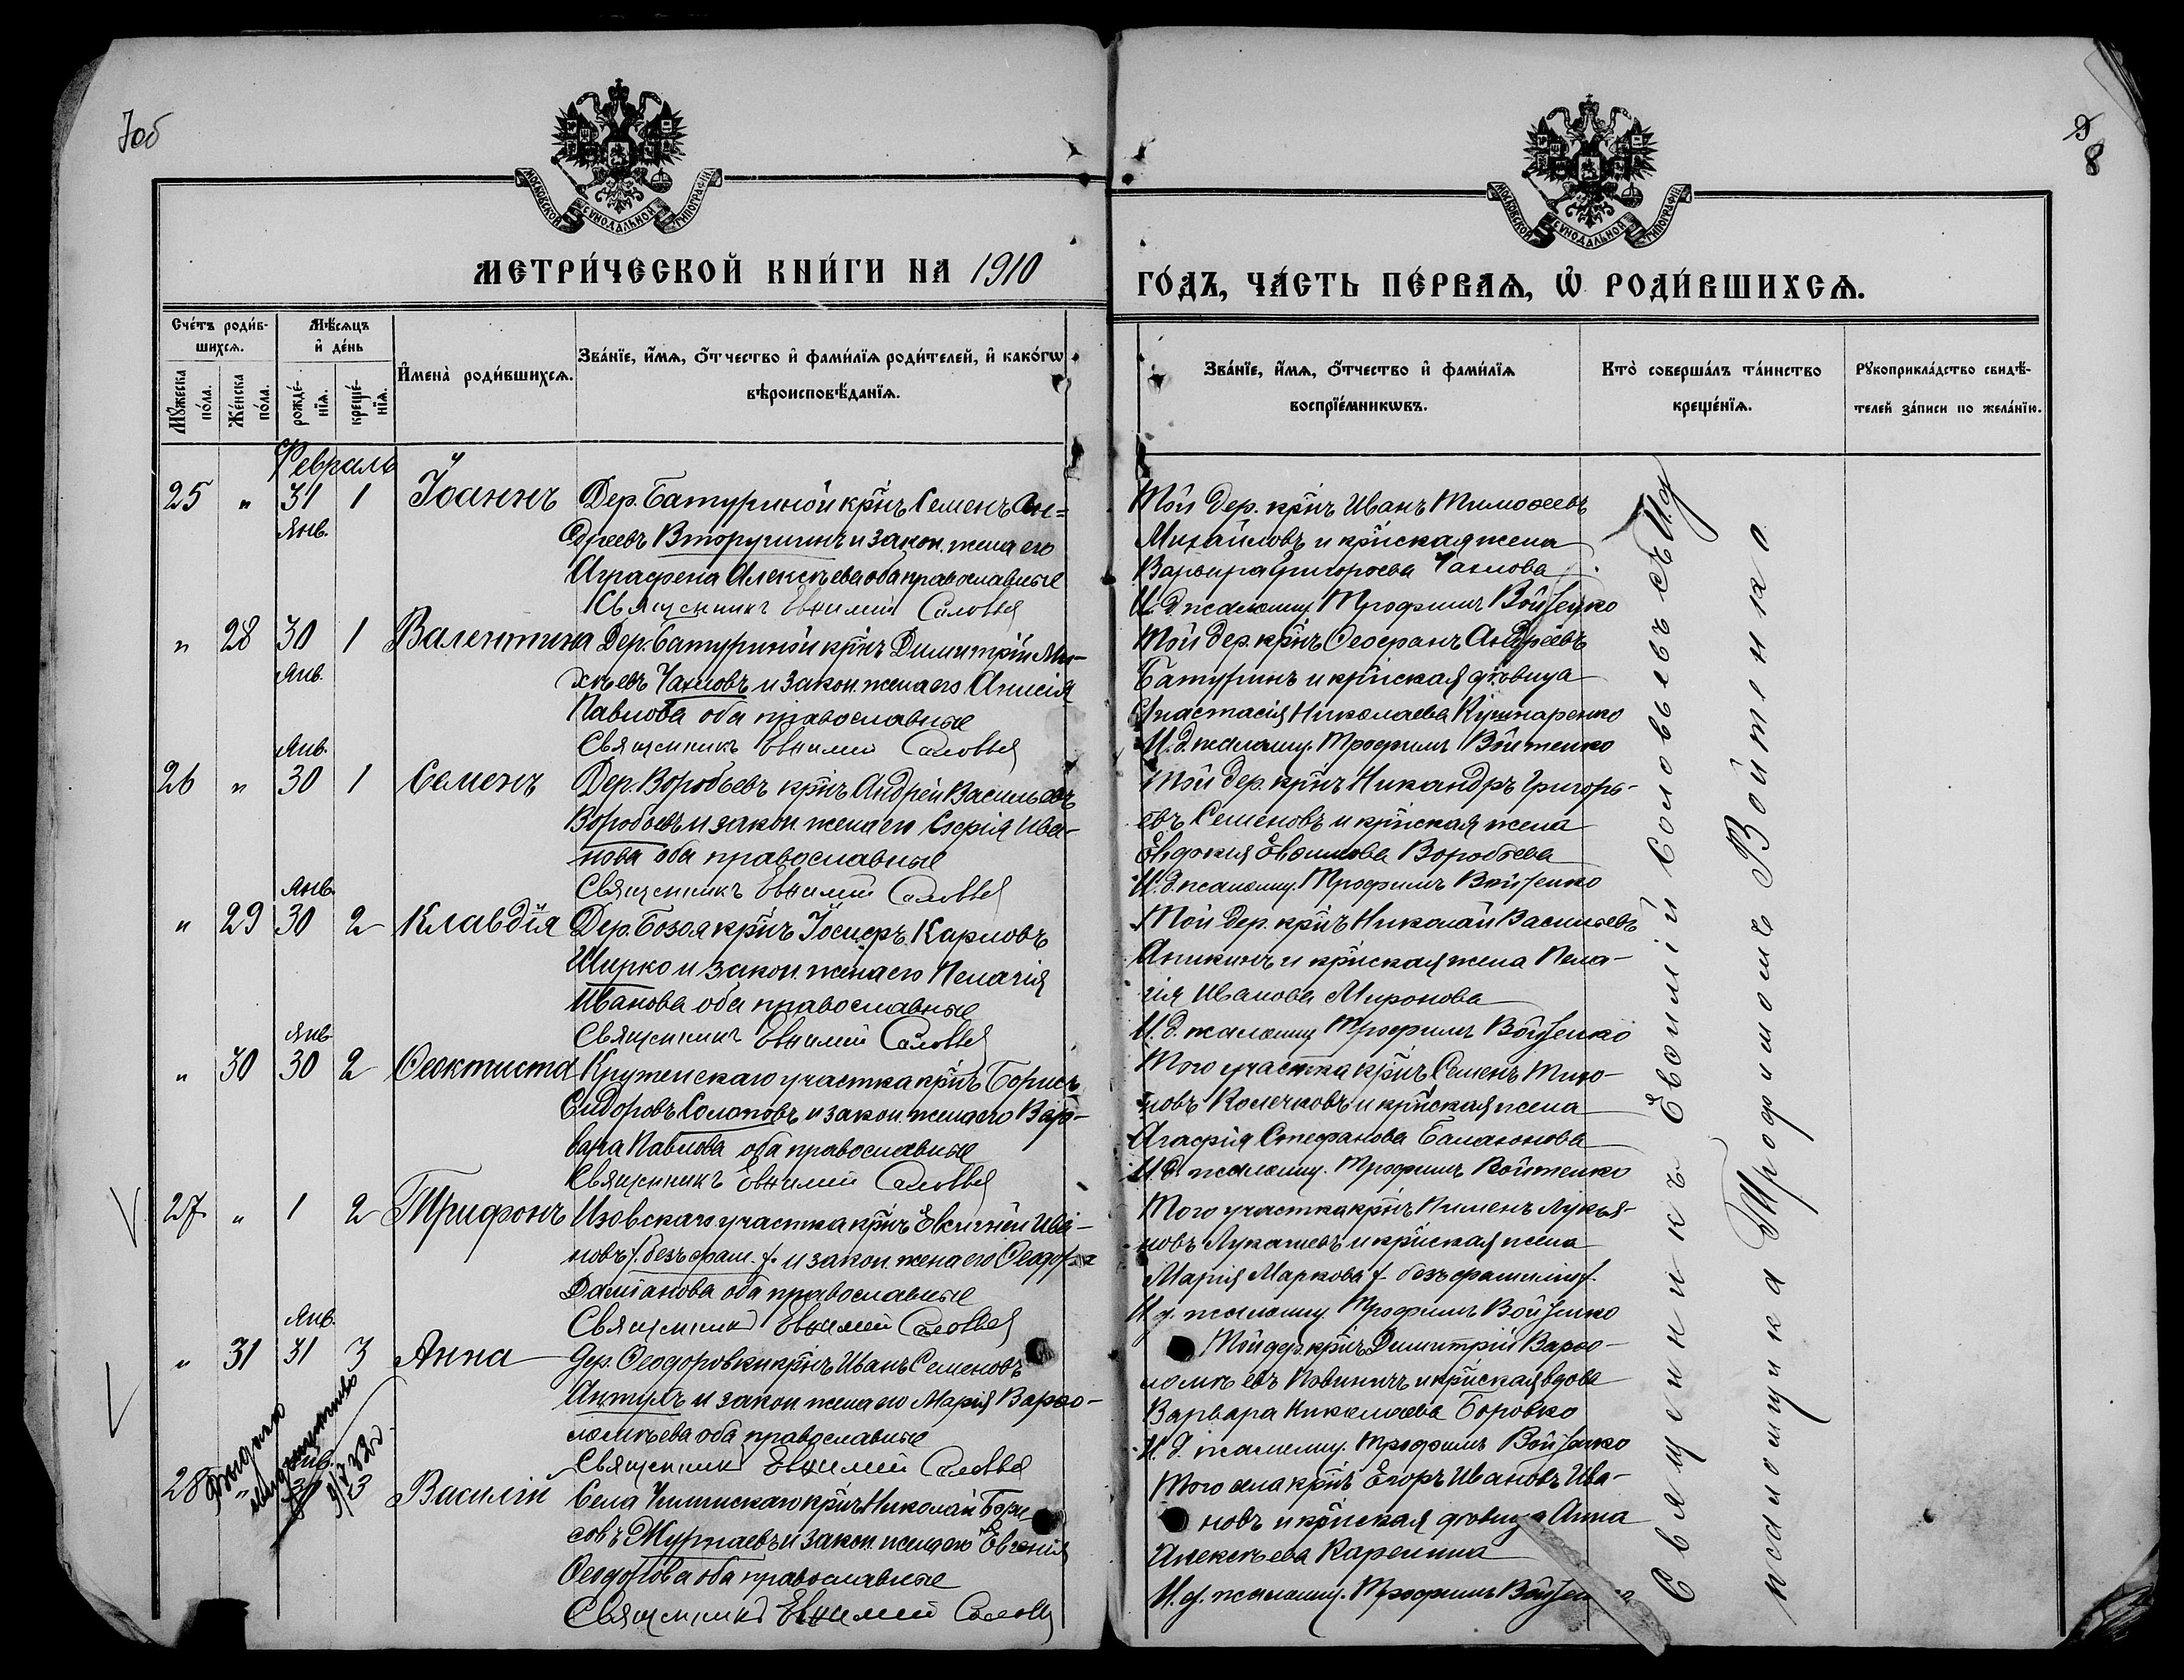 7об
9
8
МОСКОВСКОЙ СУНОДАЛЬНОЙ ТИПОГРАФІИ
МОСКОВСКОЙ СУНОДАЛЬНОЙ ТИПОГРАФІИ
МЕТРИ́ЧЕСКОЙ КНИ́ГИ НА 1910
ГО́ДЪ, ЧА́СТЬ ПЕ́РВАѦ, Ѽ РОДИ́ВШИХСѦ.
Сче́тъ роди́в-
шихсѧ.
Мꙋ́жеска
по́ла.
Же́нска
по́ла.
Мѣ́сѧцъ
и҆ де́нь
рожде́-
нїѧ.
креще́-
нїѧ.
И҆мена̀ роди́вшихсѧ.
Зва́нїе, и҆́мѧ, ѻ҆́тчество и҆ фами́лїѧ роди́телей, и҆ како́гѡ
вѣроисповѣ́данїѧ.
Зва́нїе, и҆́мѧ, ѻ҆́тчество и҆ фами́лїѧ
воспрїе́мникѡвъ.
Кто̀ соверша́лъ та́инство
креще́нїѧ.
Рꙋкоприкла́дство свидѣ́-
телей за́писи по жела́нїю.
Февраль
25 " 31 1 Іоаннъ Дер. Батуриной кр̃нъ Семенъ Ан=
Янв.
дреевъ Вторушинъ и закон. жена его
Аграфена Алексѣева оба православные
Священникъ Евѳимій Соловьев
Той дер. кр̃нъ Иванъ Тимоѳеевъ
Михайловъ и кр̃нская жена
Варвара Григорьева Чахлова
И. д. псаломщ. Трофимъ Войтенко
" 28 30 1 Валентина Дер. Батуриной кр̃нъ Димитрій Ми-
Янв.
хѣевъ Чахловъ и закон. жена его Анисія
Павлова оба православные
Священникъ Евѳимій Соловьев
Той дер. кр̃нъ Ѳеофанъ Андреевъ
Батуринъ и кр̃нская дѣвица
Анастасія Николаева Кушнаренко
И. д. псаломщ. Трофимъ Войтенко
Янв.
26 " 30 1 Семенъ Дер. Воробьевъ кр̃нъ Андрей Васильевъ
Воробьевъ и закон. жена его Софія Ива-
нова оба православные
Священникъ Евѳимій Соловьев
Той дер. кр̃нъ Никандръ Григорь-
евъ Семеновъ и кр̃нская жена
Евдокія Евѳимова Воробьева
И. д. псаломщ. Трофимъ Войтенко
Янв.
" 29 30 2 Клавдія Дер. Бозоя кр̃нъ Іосифъ Карловъ
Ширко и закон. жена его Пелагія
Иванова оба православные
Священникъ Евѳимій Соловьев
Той дер. кр̃нъ Николай Васильевъ
Аникинъ и кр̃нская жена Пела-
гія Иванова Миронова
И. д. псаломщ. Трофимъ Войтенко
Янв.
" 30 30 2 Ѳеоктиста участка кр̃нъ Борисъ
Сидоровъ Солоповъ и закон. жена его Вар-
вара Павлова оба православные
Священникъ Евѳимій Соловьев
Того участка кр̃нъ Семенъ Тихо-
новъ Колечковъ и кр̃нская жена
Агафія Стефанова Балаюнова
И. д. псаломщ. Трофимъ Войтенко
27 " 1 2 Трифонъ Изовскаго участка кр̃нъ Евсигней Ива-
новъ /безъ фам./ и закон. жена его Ѳеодора
Даміанова оба православные
Священникъ Евѳимій Соловьев
Того участка кр̃нъ Пименъ Лукья-
новъ Лукачевъ и кр̃нская жена
Марія Маркова /безъ фамиліи/
И. д. псаломщ. Трофимъ Войтенко
Янв.
" 31 31 3 Анна Дер. Ѳеодоровки кр̃нъ Иванъ Семеновъ
Антулъ и закон. жена его Марія Варѳо-
ломѣева оба православные
Священникъ Евѳимій Соловьев
Той дер. кр̃нъ Димитрій Варѳо-
ломѣевъ и кр̃нская вдова
Варвара Николаева Боровко
И. д. псаломщ. Трофимъ Войтенко
Выдано
свидѣтельство
Янв.
28 " 31 3 Василій Села Чилинскаго кр̃нъ Николай Бори-
совъ Журтаевъ и закон. жена его Евгенія
Ѳеодорова оба православные
Священникъ Евѳимій Соловьев
Того села кр̃нъ Егоръ Ивановъ Ива-
новъ и кр̃нская дѣвица Анна
Алексѣева Карелина
И. д. псаломщ. Трофимъ Войтенко
Священникъ Евѳимій Соловьевъ съ И.д.
псаломщика Трофимомъ Войтенко